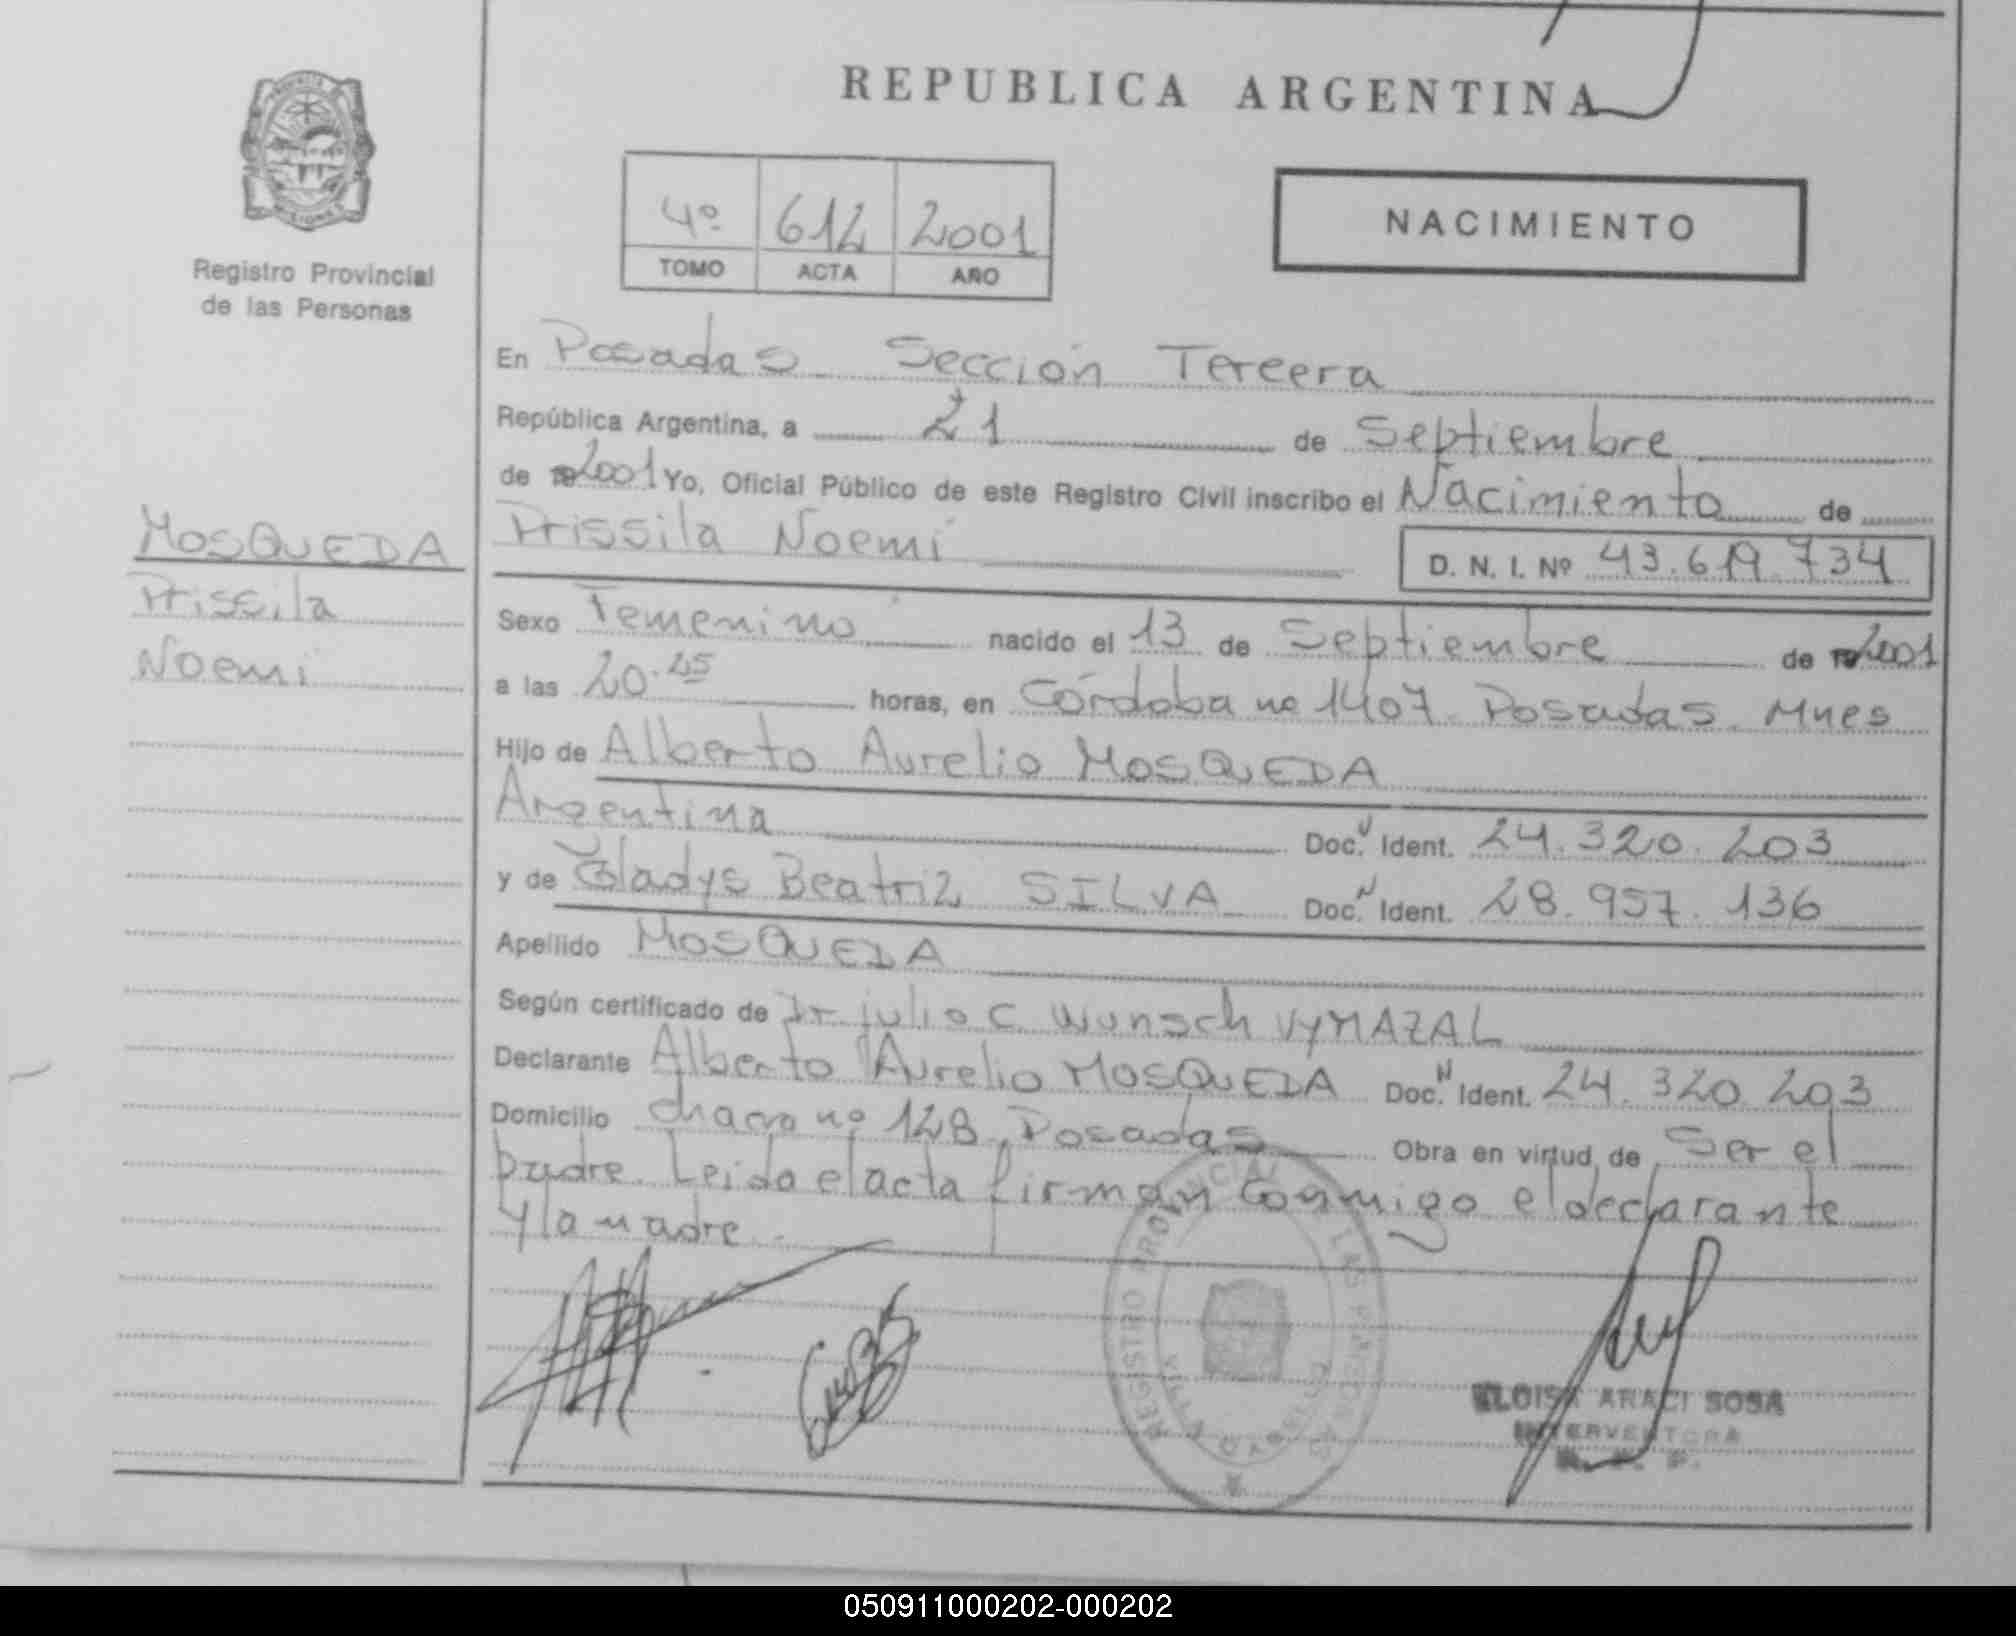 REPUBLICA ARGENTINA
Registro Provincial
de las Personas
4º 612 2001
TOMO ACTA AÑO
NACIMIENTO
En Posadas Sección Tercera
República Argentina, a 21 de Septiembre
de 2001 Yo, Oficial Público de este Registro Civil inscribo el Nacimiento de
Prissila Noemi D. N. I. Nº 43.619.734
MOSQUEDA
Prissila
Noemi
Sexo Femenino nacido el 13 de Septiembre de 2001
a las 20.25 horas, en Córdoba nº 1407. Posadas. Mnes
Hijo de Alberto Aurelio MOSQUEDA
Argentina Doc. N Ident. 24.320.203
y de Gladys Beatriz SILVA Doc. N Ident. 28.957.136
Apellido MOSQUEDA
Según certificado de Dr julio C Wunsch VYMAZAL
Declarante Alberto Aurelio MOSQUEDA Doc. N Ident. 24.320.203
Domicilio chacra nº 128, Posadas Obra en virtud de Ser el
padre. Leida el acta firman conmigo el declarante
y la madre.
REGISTRO PROVINCIAL DE LAS PERSONAS
ELOISA ARACI SOSA
INTERVENTORA
R. P. P.
050911000202-000202